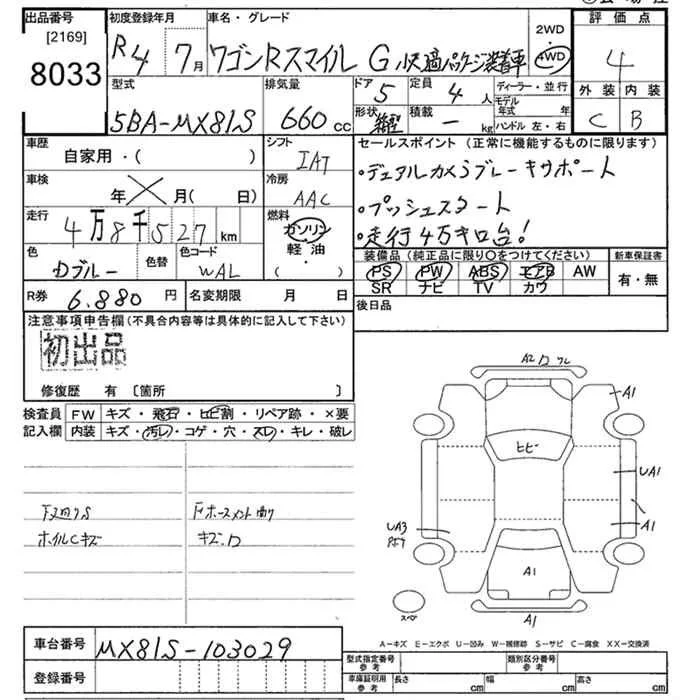 出品番号
[2169]
8033
初度登録年月
R4 7月
車名・グレード
ワゴンRスマイル G 快適パッケージ装着車
2WD
・
4WD
評価点
4
外装 内装
C B
型式
5BA-MX81S
排気量
660 cc
ドア 5
定員 4 人
ディーラー・並行
モデル年式 年
形状
積載 - kg
ハンドル 左・右
車歴
自家用・( )
シフト
IAT
セールスポイント (正常に機能するものに限ります)
・デュアルカメラブレーキサポート
・プッシュスタート
・走行4万キロ台!
車検
年 月( 日)
冷房
AAC
走行
4万8千527km
燃料
ガソリン
軽油
・( )
色
Dブルー
色替
色コード
WAL
装備品 (純正品に限り○をつけてください)
PS PW ABS エアB AW
SR ナビ TV カワ
新車保証書
有・無
R券 6.880 円
名変期限 月 日
後日品
注意事項申告欄 (不具合内容等は具体的に記入して下さい)
初出品
修復歴 有 〔箇所 〕
検査員
記入欄
FW キズ・飛石・ヒビ割・リペア跡・×要
内装 キズ・汚レ・コゲ・穴・スレ・キレ・破レ
下廻りS
ホイルCキズ
キズ.ワ
A2 ワ フレ
A1
ヒビ
UA1
A1
UA3
A1
A1
スペア
A-キズ E-エクボ U-凹み W-補修跡 S-サビ C-腐食 XX-交換済
車台番号
MX81S-103029
登録番号
型式指定番号
参考
類別区分番号
参考
車庫証明用
参考
長さ cm
幅 cm
高さ cm